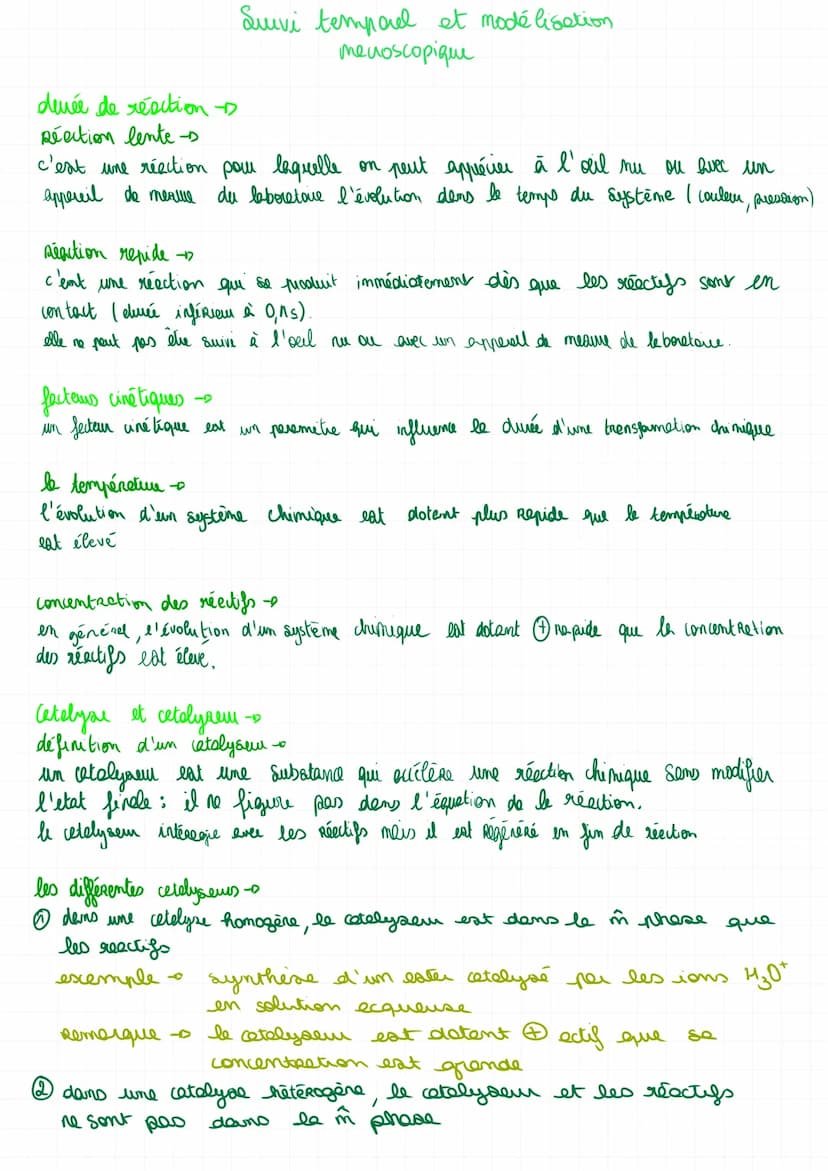 Suivi temporel et modélisation
macroscopique
durée de réaction →
Réaction lente →
c'est une réaction pour laquelle on peut apprécier à l'œil nu ou avec un
appareil de mesure du laboratoire l'évolution dans le temps du système (couleur, pression)
Réaction rapide →
c'est une réaction qui se produit immédiatement dès que les réactifs sont en
contact (durée inférieur à 0,1s).
elle ne peut pas être suivi à l'oeil nu ou avec un appareil de mesure de laboratoire.
facteurs cinétiques →
un facteur cinétique est un paramètre qui influence la durée d'une transformation chimique
la température →
l'évolution d'un système chimique est dotant plus rapide que la température
est élevé
concentration des réactifs →
en général, l'évolution d'un système chimique est dotant ⊕ rapide que la concentration
des réactifs est élevé.
Catalyse et catalyseur →
définition d'un catalyseur →
un catalyseur est une substance qui accélère une réaction chimique sans modifier
l'etat finale : il ne figure pas dans l'équation de la réaction.
le catalyseur interagie avec les réactifs mais il est régénéré en fin de réaction
les différentes catalyseurs →
① dans une catalyse homogène, le catalyseur est dans la m̂ phase que
les reactifs
exemple → synthèse d'un ester catalysé par les ions H₃O⁺
en solution acqueuse
Remarque → le catalyseur est dotant ⊕ actif que sa
concentration est grande
② dans une catalyse hétérogène, le catalyseur et les réactifs
ne sont pas dans la m̂ phase